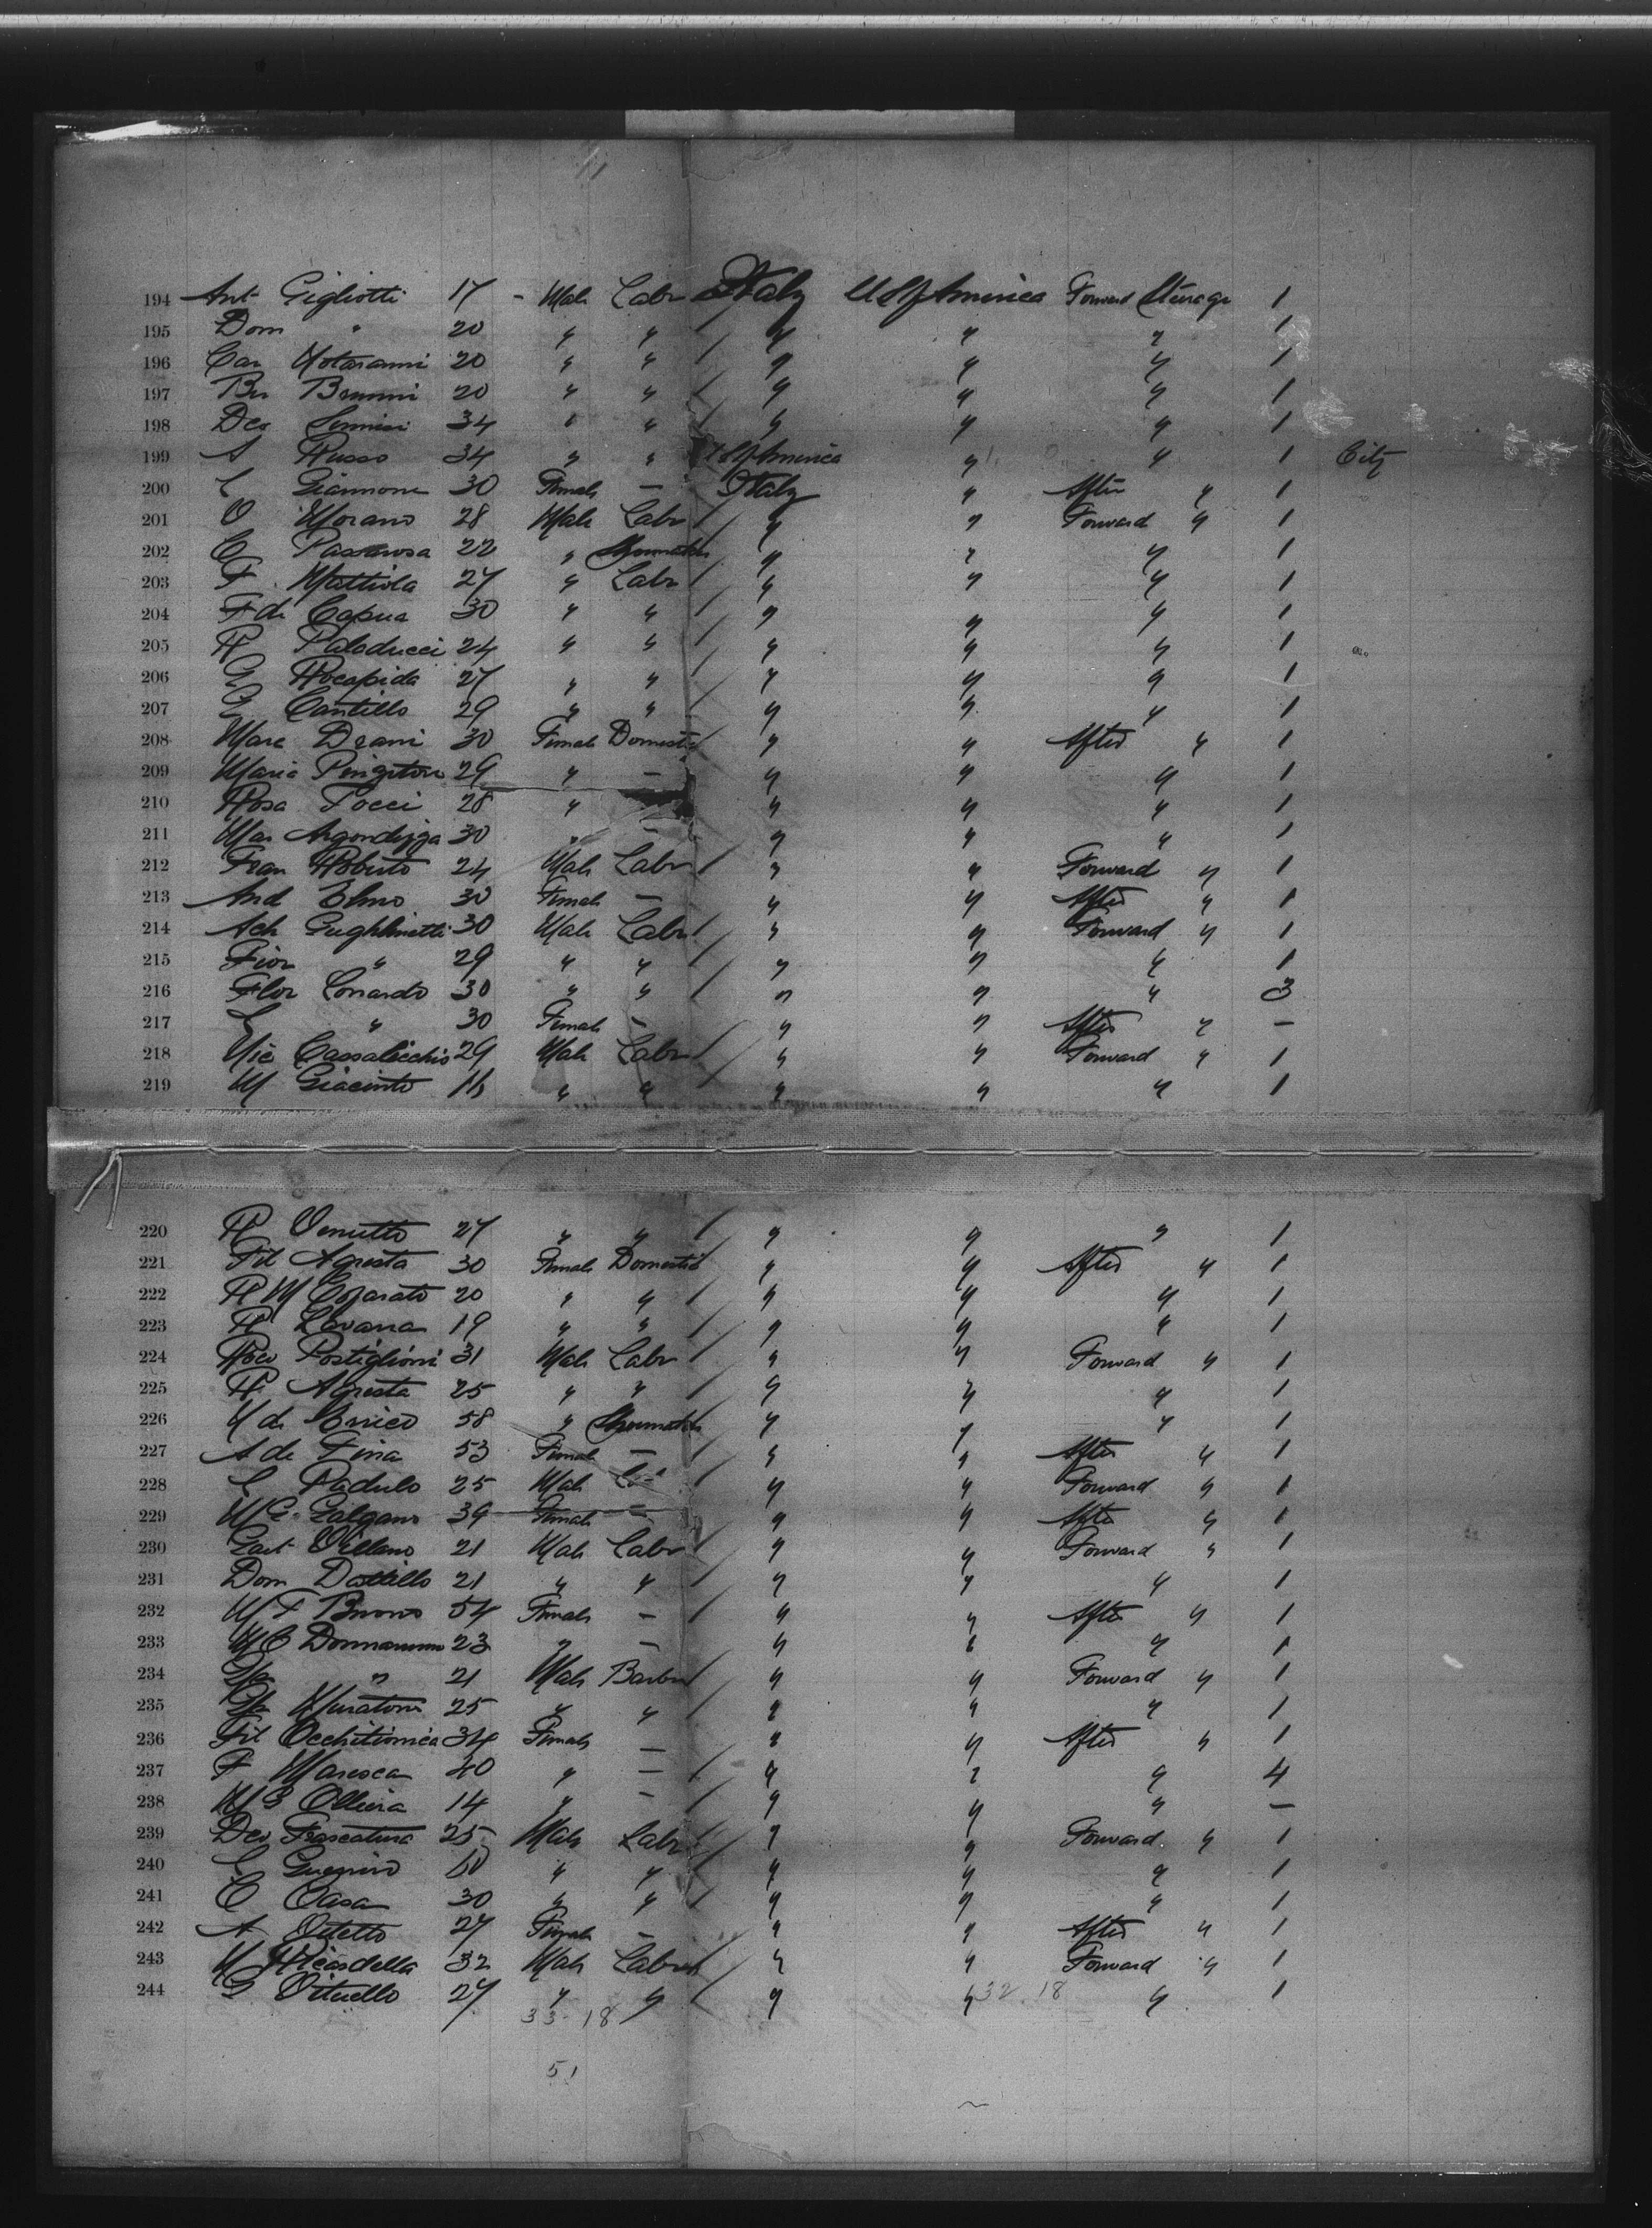 194 Ant Gigliotti 17 - Male Labr Italy U S of America Forward Steerage 1
195 Dom " 20 " " / " " " 1
196 Car 20 " " / " " " 1
197 Ber Brunni 20 " " / " " " 1
198 Deo 34 " " / " " " 1
199 A Russo 34 " " U S of America " " 1 City
200 C Giannone 30 Female — Italy " After " 1
201 O Morano 28 Male Labr / " " Forward " 1
202 C 22 " Shoemaker " " " 1
203 F Mattiola 27 " Labr / " " " 1
204 F di Capua 30 " " / " " " 1
205 R Paladucci 24 " " / " " " 1
206 G Rocapida 27 " " / " " " 1
207 G Cantillo 29 " " / " " " 1
208 Mare Deani 30 Female Domestic / " " After " 1
209 Maria 29 " — " " " 1
210 Rosa Pocci 28 " " " " 1
211 Mar Argondizza 30 " — " " " 1
212 Fran Roberto 24 Male Labr / " " Forward " 1
213 And Elmo 30 Female — " " After " 1
214 Ach Gughlmetti 30 Male Labr / " " Forward " 1
215 Fior " 29 " " / " " " 1
216 Flor Conardo 30 " " / " " " 3
217 " 30 Female — " " After " —
218 Vic Cassalicchio 29 Male Labr / " " Forward " 1
219 M Giacinto 16 " " / " " " 1
220 R Venutto 27 " " / " " " 1
221 Fil Agresta 30 Female Domestic " " After " 1
222 R M Cozarato 20 " " / " " " 1
223 R Lavana 19 " " / " " " 1
224 Roco Postiglioni 31 Male Labr / " " Forward " 1
225 R Agresta 25 " " / " " " 1
226 M di Errico 58 " Shoemaker " " " 1
227 A de Fina 53 Female — / " " After " 1
228 C Padulo 25 Male / " " Forward " 1
229 M G Galgano 39 Female — " " After " 1
230 Gaet Villano 21 Male Labr / " " Forward " 1
231 Dom Dattillo 21 " " / " " " 1
232 M F Buono 54 Female — / " " After " 1
233 M C Donnarumm 23 " — " " " 1
234 " 21 Male Barber / " " Forward " 1
235 Muratori 25 " " " " " 1
236 Fil Occhitionica 34 Female — " " After " 1
237 F Maresca 40 " — / " " " 4
238 M G Olliera 14 " — / " " " —
239 Deo Frascatura 25 Male Labr / " " Forward " 1
240 C Guerrino " " / " " " 1
241 C Casa 30 " " / " " " 1
242 A Ottetto 27 Female — " " After " 1
243 M Ricardella 32 Male Labr / " " Forward " 1
244 G Vituello 27 " " / " " " 1
33-18 32.18
51